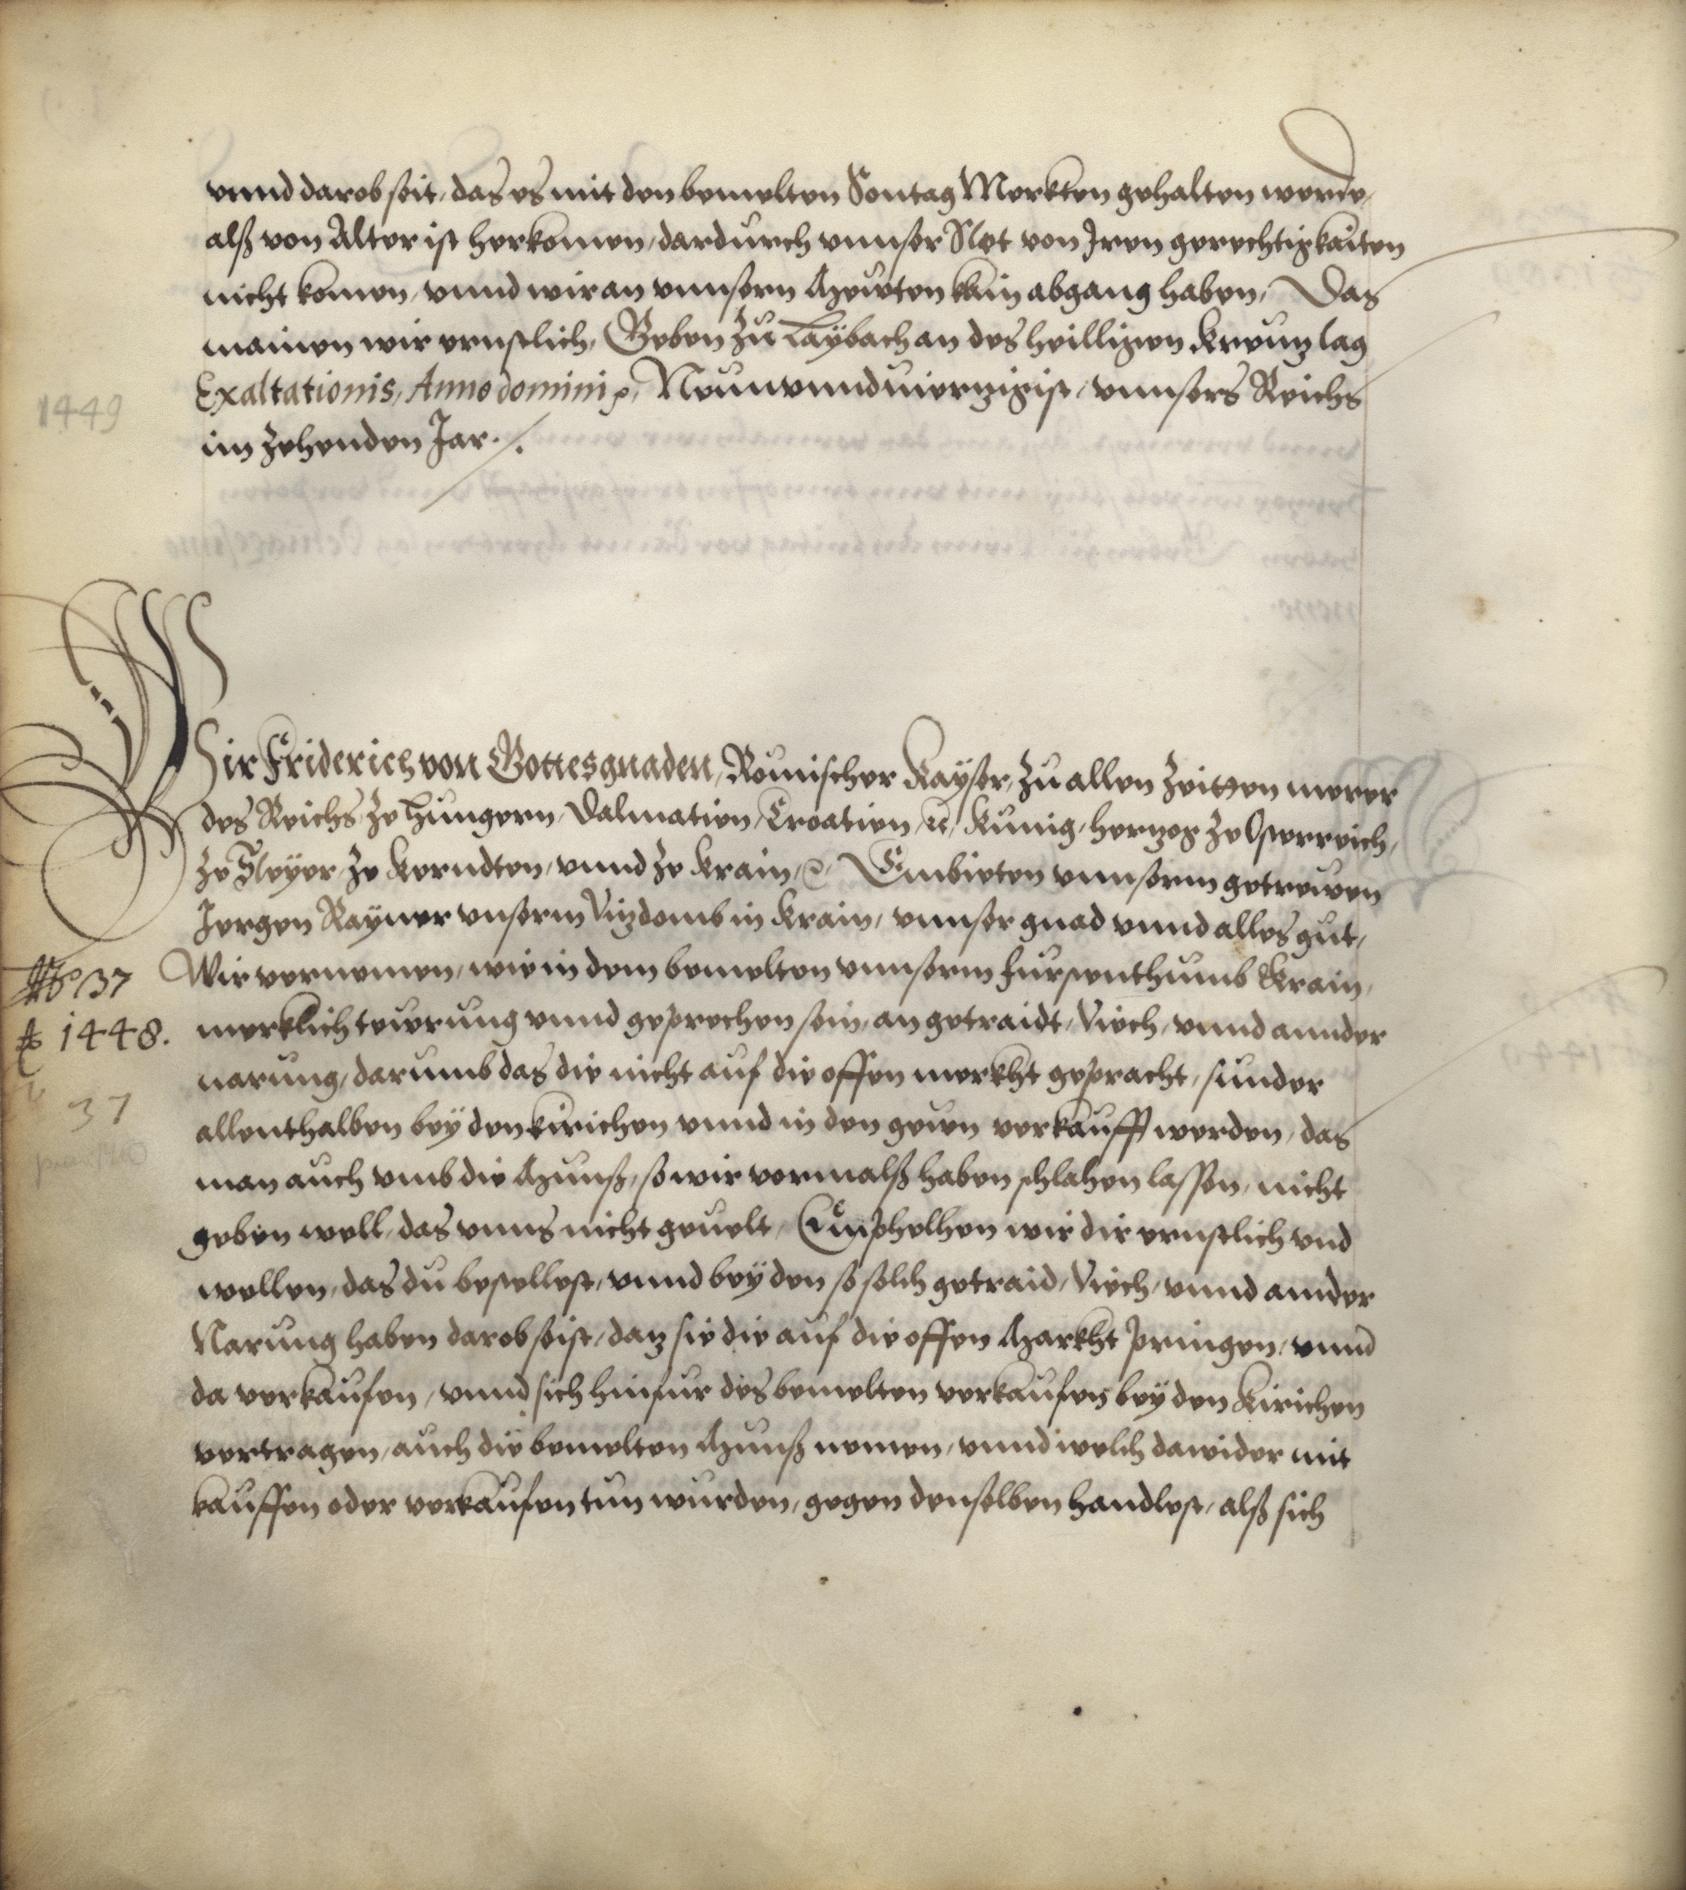 vnnd darob seit, das es mit den bemelten Sontag Merkten gehalten werde,
alß von Alter ist herkomen, dardurch vnnser Stet von Iren gerechtigkaiten
nicht komen, vnnd wir an vnnsern Mewten kain abgang haben, Das
mainen wir ernstlich, Geben zu Laÿbach an des heilligen Kreuz tag
Exaltationis, Anno domini etc, Neunvnnduierzigist, vnnsers Reichs
im zehenden Jar ./.
1449
Wir Friderich von Gottes gnaden, Römischer Kaÿser, zu allen Zeitten merer
des Reichs, ze Hungern, Dalmatien, Croatien, etc, Kunig, Herzog ze Osterreich,
ze Steÿer, ze Kerndten, vnnd ze Krain, etc, Embieten vnnserm getrewen
Jorgen Raÿner vnserm Vizdomb in Krain, vnnser gnad vnnd alles gut,
Wir vernemen, wie in dem bemelten vnnserm Furstenthumb Krain,
merklich tewrung vnnd gesprechen sein, an getraidt, Viech, vnnd annder
narung, darumb das die nicht auf die offen merkht gepracht, sunder
allenthalben beÿ den kirichen vnnd in den gewen verkaufft werden, das
man auch vmb die Munß, so wir vormalß haben schlahen lassen, nicht
geben well, das vnns nicht geuelt, Emphelhen wir dir ernstlich vnd
wellen, das du bestellest, vnnd beÿ den so solch getraid, Viech, vnnd annder
Narung haben darob seist, daz sie die auf die offen Markht pringen, vnnd
da verkaufen, vnnd sich hinfur des bemelten verkaufens beÿ den Kirichen
vertragen, auch die bemelten Munß nemen, vnnd welch dawider mit
kauffen oder verkaufen tun wurden, gegen denselben handlest, alß sich
No 37
1448.
37